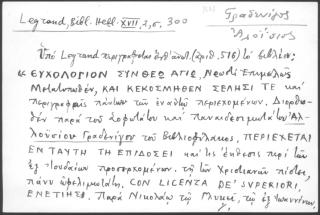 Legrand, Bibl. Hell. XVII, 2, σ. 300
Γραδενίγος
Ἀλοΐσιος
Ὑπὸ Legrand περιγράφεται (ἀριθ. 516) τὸ βιβλίον:
« ΕΥΧΟΛΟΓΙΟΝ ΣΥΝΘΕΩ ΑΓΙΩ, Νεωστὶ
ΚΑΙ ΚΕΚΟΣΜΗΘΕΝ ΣΕΛΗΣΙ ΤΕ καὶ
πάντων τῶν περιεχομένων. Διορθω-
θὲν παρὰ τοῦ σοφωτάτου καὶ Ἀλ-
λουϊσίου Γραδενίγου τοῦ Βιβλιοφύλακος, ΠΕΡΙΕΧΕΤΑΙ
ΕΝ ΤΑΥΤΗ ΤΗ ΕΠΙΔΟΣΕΙ καὶ τις ἔκθεσις περὶ τῶν
ἐξ Ἰουδαίων προσερχομένων τῇ τῶν Χριστιανῶν πίστει,
πάνυ ὠφελιμωτάτη. CON LICENZA DE' SUPERIORI,
ΕΝΕΤΙΗΣΙ. Παρὰ Νικολάῳ τῷ τῷ ἐξ Ἰωαννίνων,